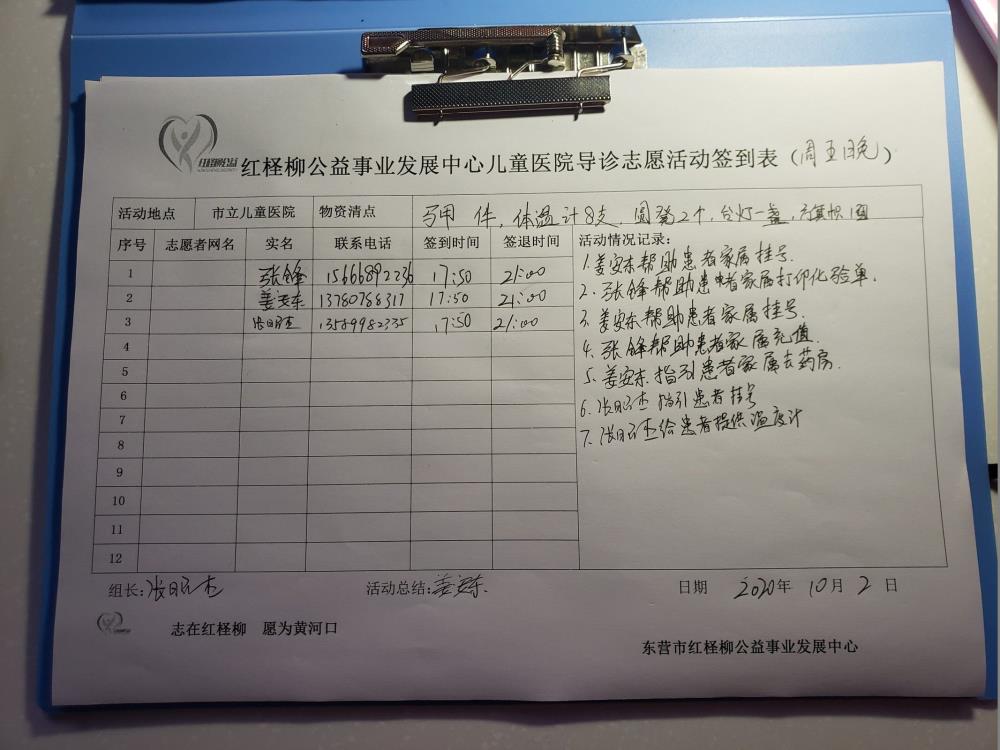 红柽柳公益
红柽柳公益事业发展中心儿童医院导诊志愿活动签到表（周五晚）
活动地点 市立儿童医院 物资清点 马甲 件，体温计8支，圆凳2个，台灯一盏，方旗帜1面
序号 志愿者网名 实名 联系电话 签到时间 签退时间 活动情况记录：
1 张锋 15666892236 17:50 21:00
2 姜安东 13780788317 17:50 21:00
3 张昭杰 13589982335 17:50 21:00
4
5
6
7
8
9
10
11
12
1.姜安东帮助患者家属挂号.
2.张锋帮助患者家属打印化验单.
3.姜安东帮助患者家属挂号.
4.张锋帮助患者家属充值.
5.姜安东指引患者家属去药房.
6.张昭杰指引患者挂号
7.张昭杰给患者提供温度计
组长：张昭杰 活动总结：姜安东. 日期 2020年 10月 2 日
志在红柽柳 愿为黄河口
东营市红柽柳公益事业发展中心